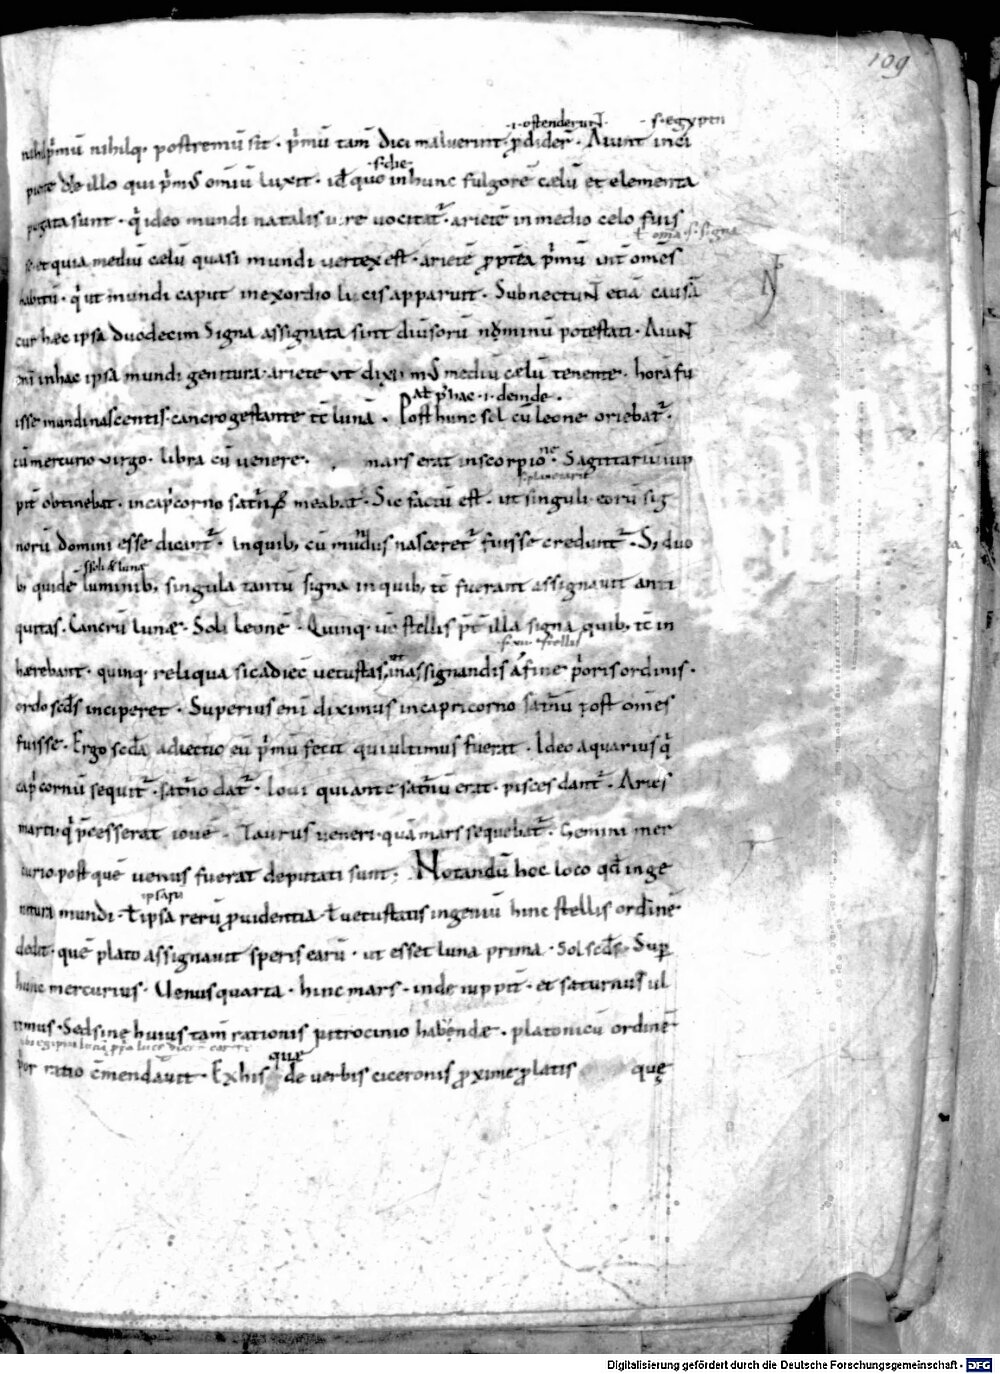 109
·i·ostenderunt· ·s·egyptii
nihil p̄mū nihilq· postremū sit · p̄mū tam̄ dici maluerint · p̄dider̄ · Aiunt inci
·s·die·
piente die illo qui p̄mꝰ omiū luxit · id ̄ quo in hunc fulgorē cælū et elementa
purgata sunt · q̄ ideo mundi natalis iure uocitat̄ · arietē in medio celo fuis
ł oma ·s· signa
se· et quia mediū cælū quasi mundi vertex est · arietē p̄ptea p̄mū int̄ om̄s
habitū · q̄ ut mundi caput in exordio lucis apparuit · Subnectuɴt etiā causā
cur hæc ipsa duodecim Signa assignata sint diuisorū nominū potestati · Aiuɴt
eni in hac ipsa mundi genitura· ariete vt dixim̄ꝰ mediū cælū tenente · horā fu
p̄ hac ·i· deinde ·
isse mundi nascentis· cancro gestante tc̄ lunā · Post hunc sol cū leone oriebat̄ ·
cū mercurio virgo · libra cū uenere · mars erat in scorpione · Sagittariū iup
pit̄ obtinebat · in cap̄corno sat̄nꝰ meabat · Sic factū est · ut singuli eorū sig
norū domini esse dicant̄ · in quib; cū mundus nasceret̄ fuisse credunt̄ · S; duo
·s·soli & lunæ
b; quidē luminib; singula tantū signa in quib; tc̄ fuerant assignauit anti
quitas · Cancrū lunæ · Soli leonē · Quinq· uō stellis p̄t̄ illa signa quib; tc̄ in
hærebant · quinq· reliqua sic adiec̄ uetustas, ut in assignandis a fine p̄oris ordinis ·
ordo scds inciperet · Superius eni diximus in capricorno sat̄nū post om̄s
fuisse · Ergo scdā adiectio eū p̄mū fecit qui ultimus fuerat · Ideo aquarius q̄
cap̄cornū sequit̄ · sat̄no dat̄ · Ioui qui ante sat̄nū erat · pisces dant̄ · Aries
marti· q̄ p̄cesserat iouē · Taurus ueneri· quā mars sequebat̄ · Gemini mer
curio· post quē uenus fuerat deputati sunt; Notandū hoc loco qd̄ in ge
ipsarū
nitura mundi · ł ipsa rerū p̄uidentia · ł uetustatis ingeniū hinc stellis ordinē
dedit · quē plato assignauit speris earū · ut esset luna prima · Sol scds · Sup̄
hunc mercurius · Uenus quarta · hinc mars · inde iuppit̄ · et saturnus ul
timus · Sed sine huius tam̄ rationis patrocinio habendæ · platonicū ordinē
quę
por ratio c̄mendauit · Ex his de uerbis ciceronis p̄xime p̄latis quę
Digitalisierung gefördert durch die Deutsche Forschungsgemeinschaft - DFG